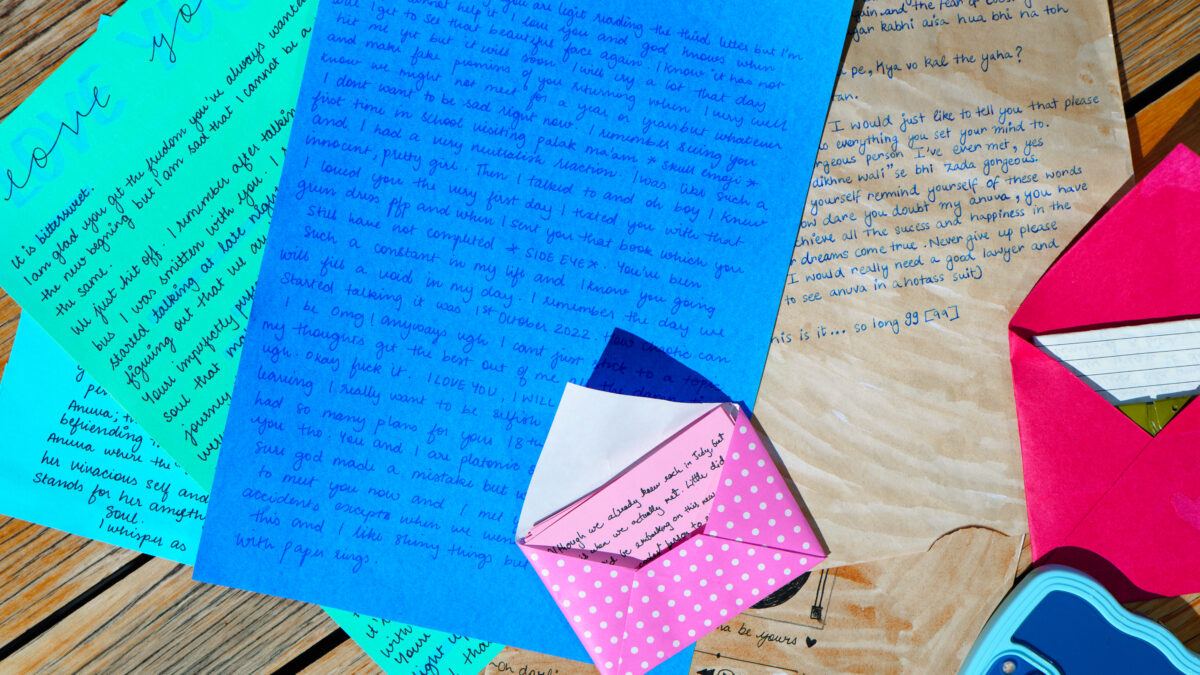 love yo
LOVE YO
It is bittersweet.
I am glad you got the freedom you've always wanted
the new begining but I am sad that I cannot be a
the same.
We just hit off. I remember after talking
bus I was smitten with you. I
started talking at late night
figuring out that we are
Your imperfectly per
soul that ma
journey
wer
Anuva, t
befriending
Anuva where the
her vivacious self and
stands for her
Soul.
I whisper as
you are legit reading the third letter but I'm
cannot help it. I love you and god knows when
will I get to see that beautiful face again. I know it has not
hit me yet but it will soon. I will cry a lot that day
and make fake promises of you returning when I very well
know we might not meet for a year or years but whatever
I dont want to be sad right now. I remember seeing you
first time in school visiting palak ma'am * skull emoji *
and I had a very neutralish reaction. I was like such a
innocent, pretty girl. Then I talked to and oh boy I knew
I loved you the very first day I texted you with that
green dress pfp and when I sent you that book which you
still have not completed * SIDE EYE *. You've been
such a constant in my life and I know you going
will fill a void in my day. I remember the day we
started talking it was 1st October 2022. How chaotic can
I be omg! anyways ugh I cant just stick to a topic
my thoughts get the best out of me all the damn
ugh. Okay fuck it. I LOVE YOU, I WILL
leaving I really want to be selfish
had so many plans for your 18th
you tho. You and I are platonic s
sure god made a mistake but
to meet you now and I met y
accidents except when we wen
this and I like shiny things but
with paper rings.
again and the fear of
gar kabhi aisa hua bhi na toh
pe, Kya vo Kal the yaha?
I would just like to tell you that please
do everything you set your mind to.
rgeous person I've even met, yes
dikhne wali" se bhi zada gorgeous.
yourself remind yourself of these words
ow dare you doubt my anuva, you have
chieve all the sucess and happiness in the
r dreams come true. Never give up please
I would really need a good lawyer and
to see anuva in a hotass suit)
his is it... so long gg [99]
Although we already knew each in July, but
it when we actually met. Little did
be embarking on this new
be yours ♥
oh darli
it's
with
Your
ight
I tha